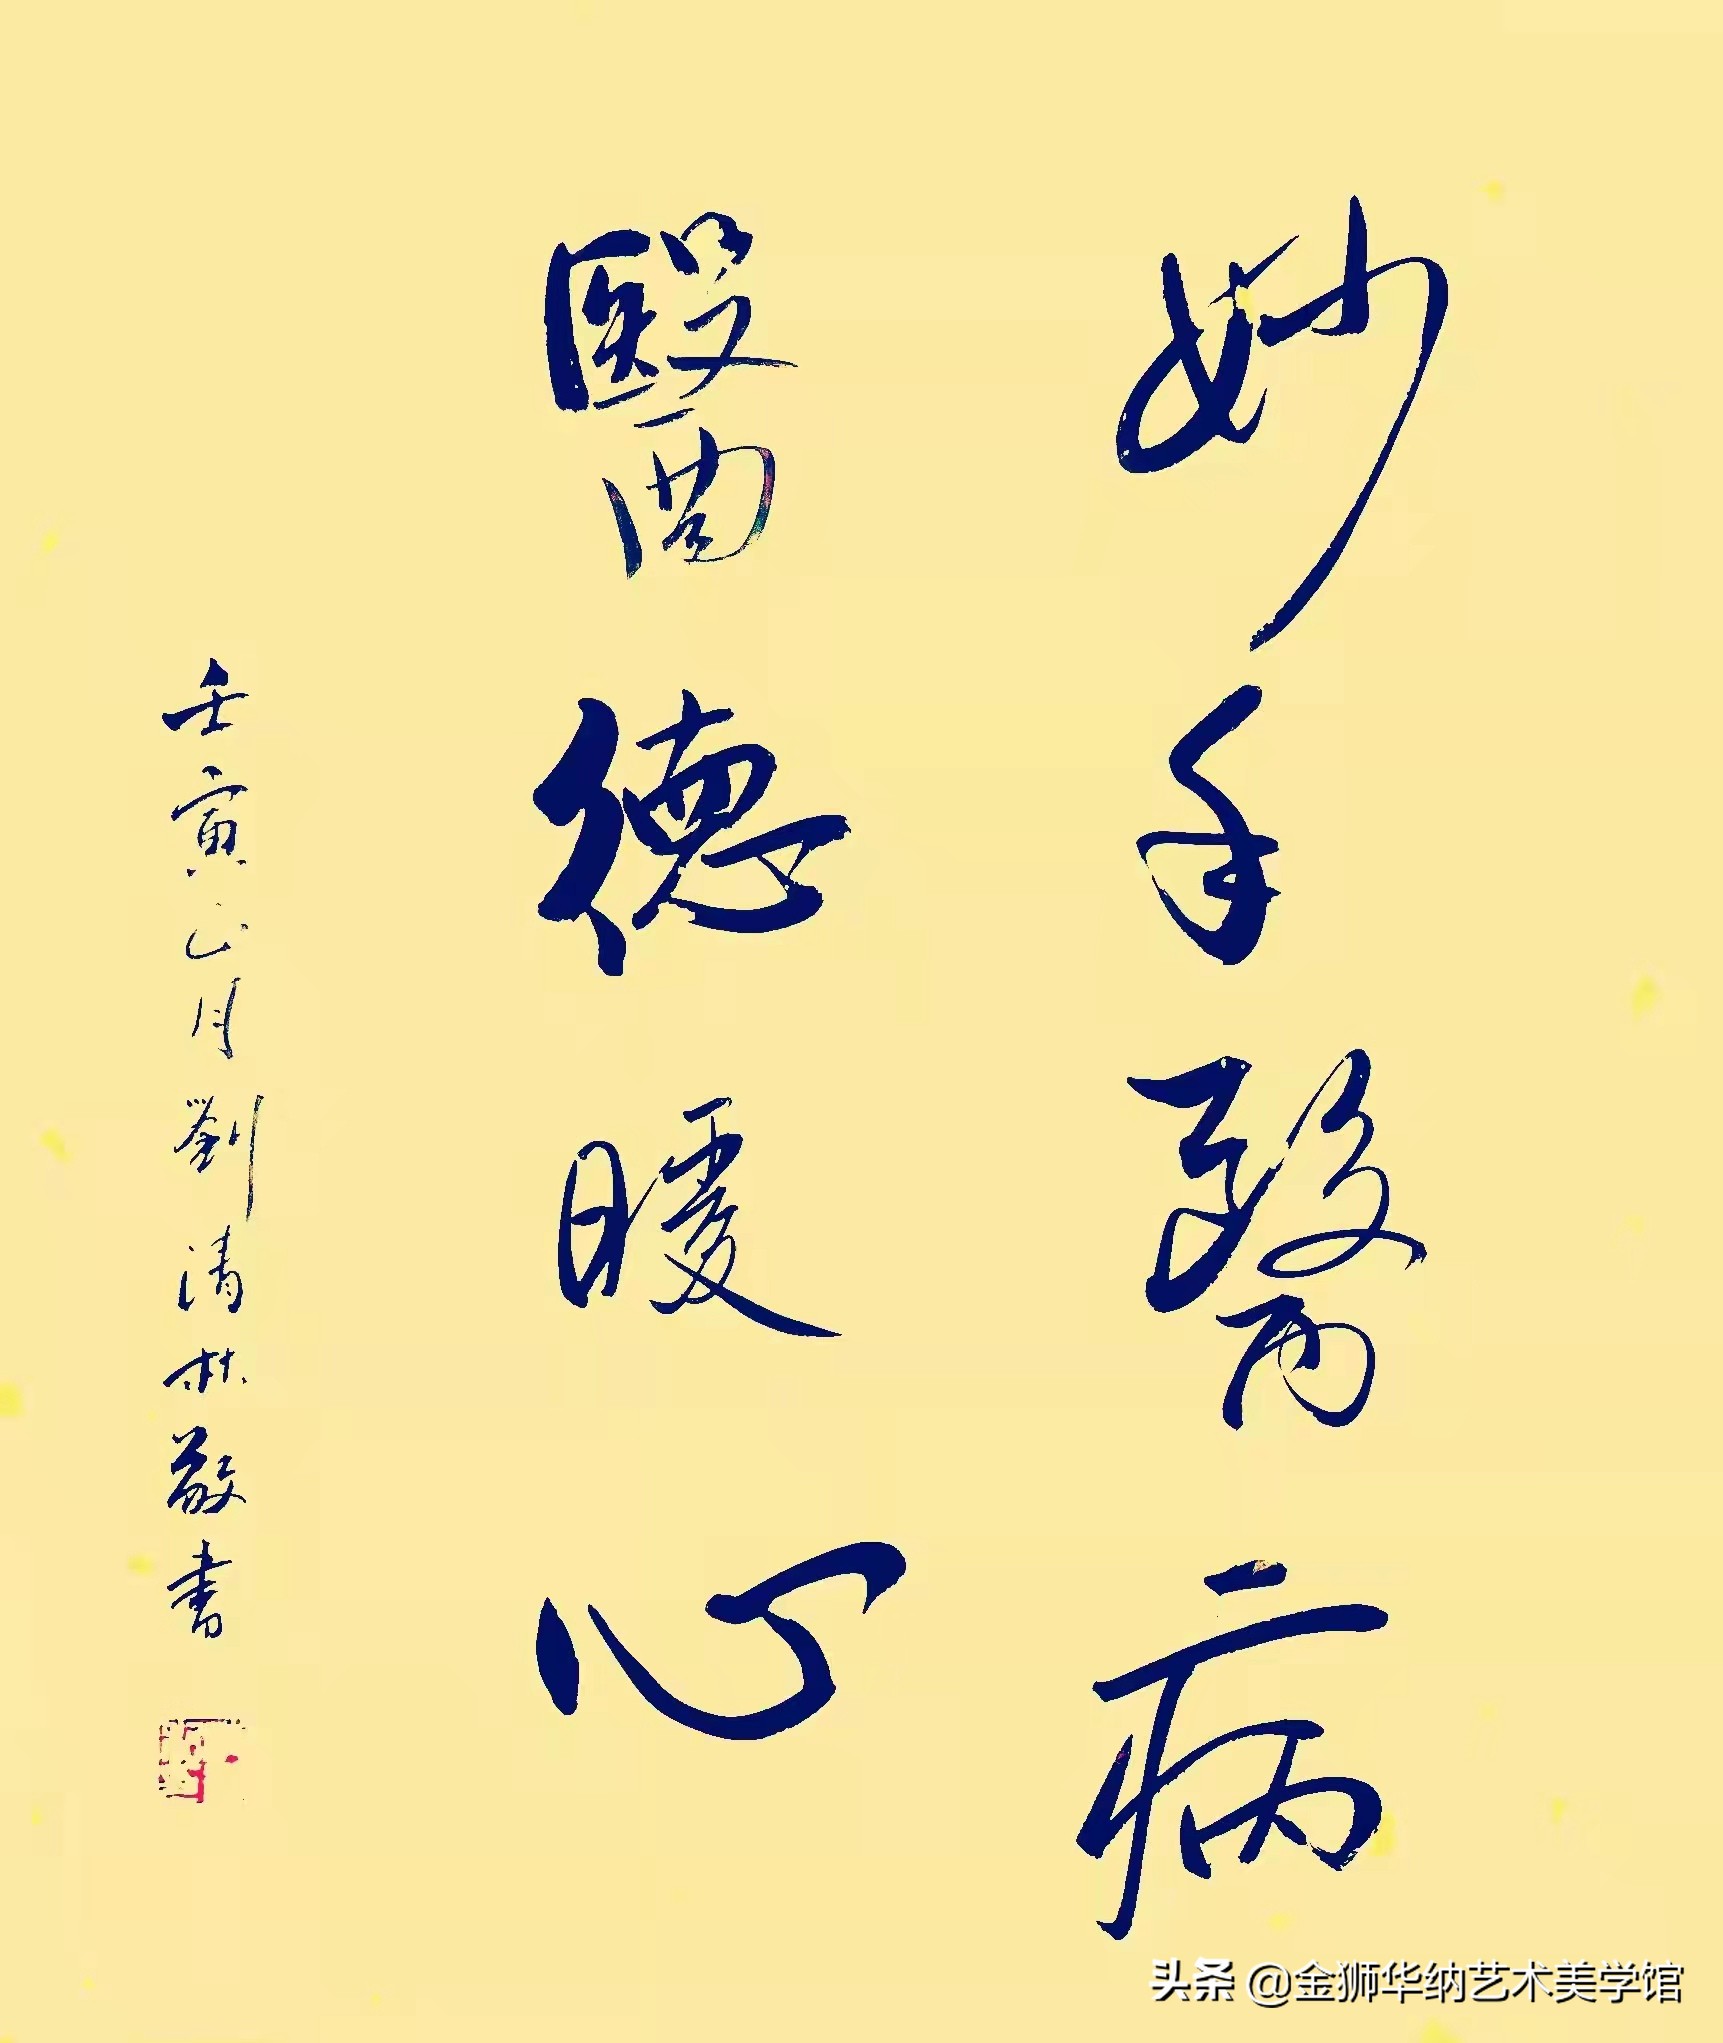 妙手醫病
醫德暖心
壬寅正月劉清林敬書
头条 @金狮华纳艺术美学馆